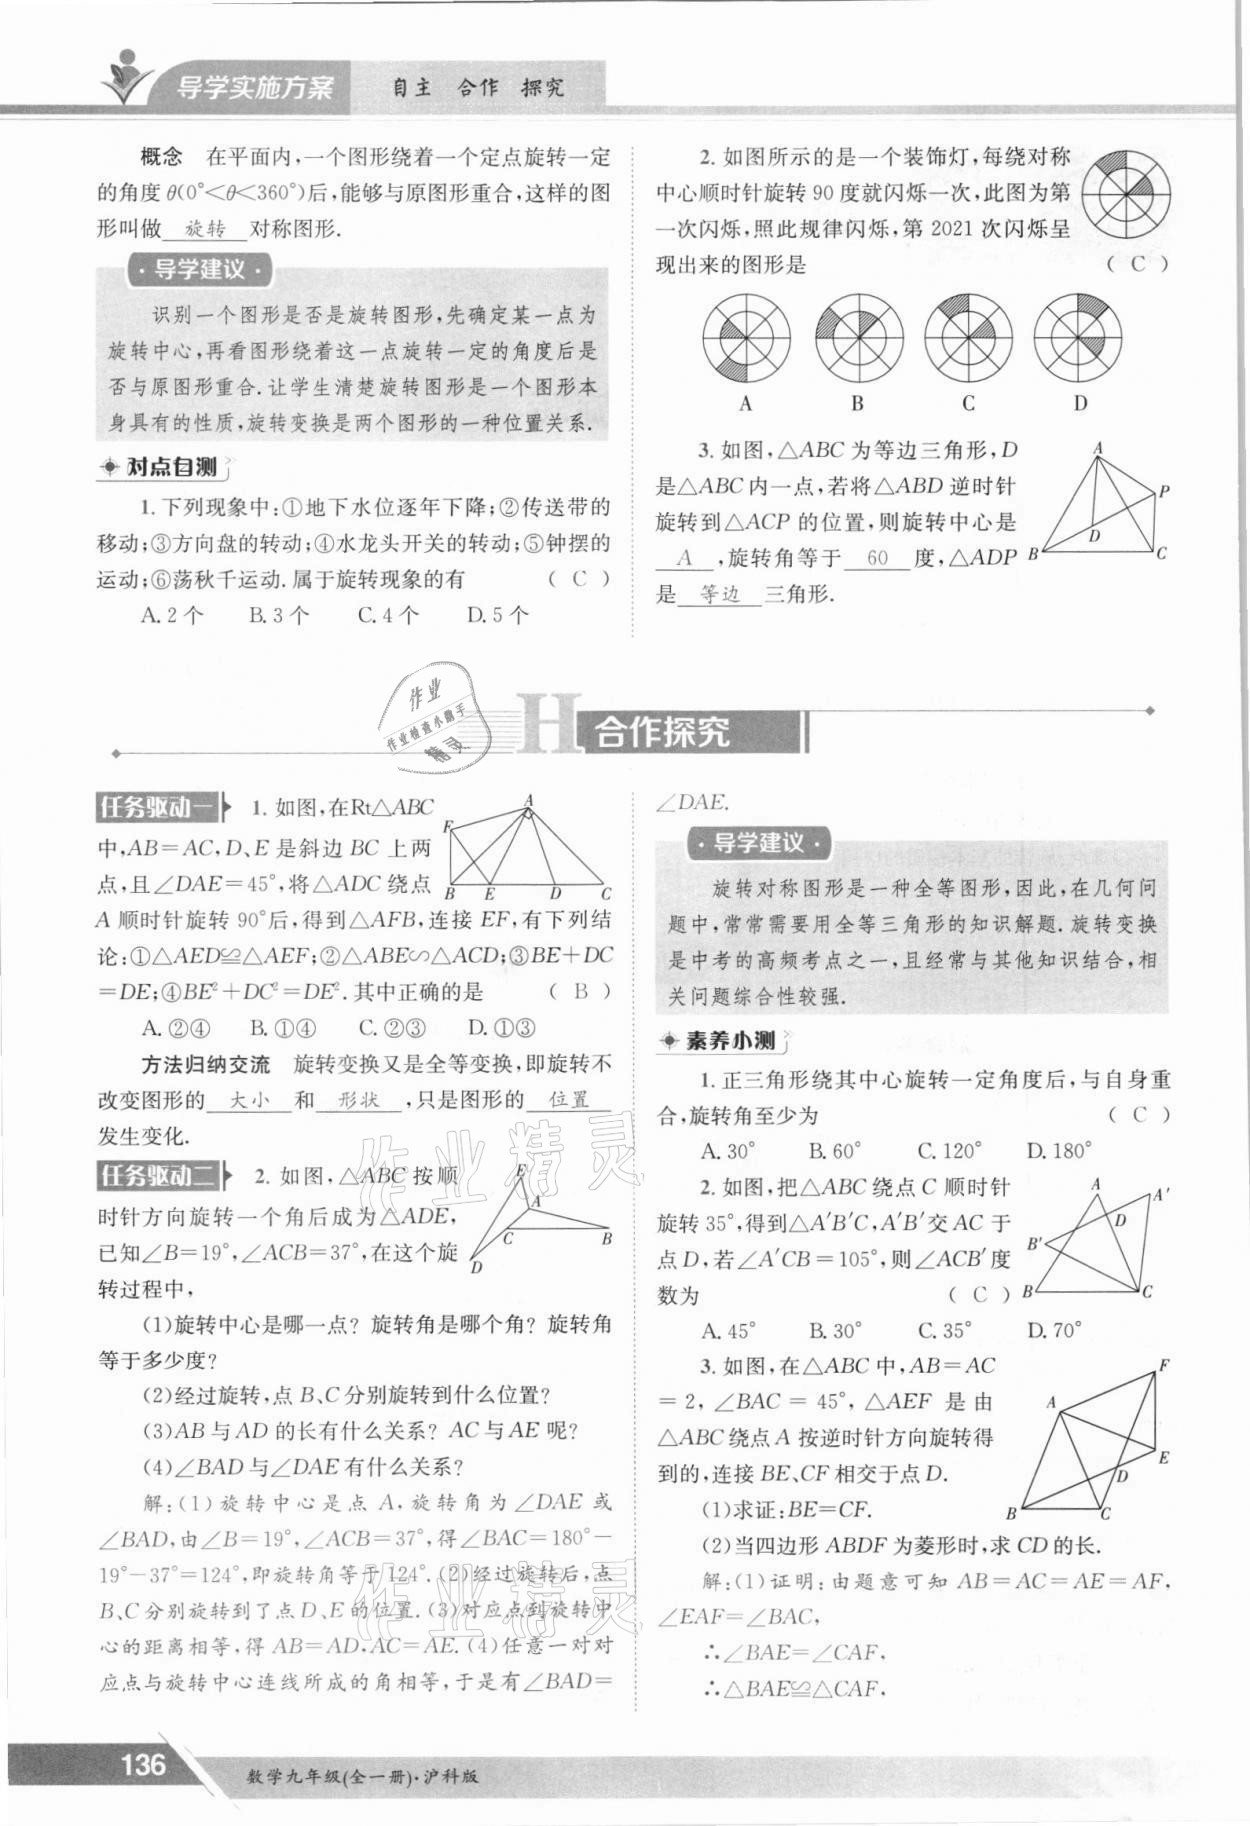 导学实施方案 自主 合作 探究
概念 在平面内,一个图形绕着一个定点旋转一定
的角度θ(0°<θ<360°)后,能够与原图形重合,这样的图
形叫做 旋转 对称图形.
·导学建议·
识别一个图形是否是旋转图形,先确定某一点为
旋转中心,再看图形绕着这一点旋转一定的角度后是
否与原图形重合.让学生清楚旋转图形是一个图形本
身具有的性质,旋转变换是两个图形的一种位置关系.
对点自测
1.下列现象中:①地下水位逐年下降;②传送带的
移动;③方向盘的转动;④水龙头开关的转动;⑤钟摆的
运动;⑥荡秋千运动.属于旋转现象的有 ( C )
A.2个 B.3个 C.4个 D.5个
2.如图所示的是一个装饰灯,每绕对称
中心顺时针旋转90度就闪烁一次,此图为第
一次闪烁,照此规律闪烁,第2021次闪烁呈
现出来的图形是 ( C )
A B C D
3.如图,△ABC为等边三角形,D
是△ABC内一点,若将△ABD逆时针
旋转到△ACP的位置,则旋转中心是
A ,旋转角等于 60 度,△ADP
是 等边 三角形.
A
P
D
B C
作业
作业检查小助手
精灵
H 合作探究
任务驱动一 1.如图,在Rt△ABC
中,AB=AC,D、E是斜边BC上两
点,且∠DAE=45°,将△ADC绕点
A顺时针旋转90°后,得到△AFB,连接EF,有下列结
论:①△AED≌△AEF;②△ABE∽△ACD;③BE+DC
=DE;④BE²+DC²=DE².其中正确的是 ( B )
A.②④ B.①④ C.②③ D.①③
A
F
B E D C
方法归纳交流 旋转变换又是全等变换,即旋转不
改变图形的 大小 和 形状 ,只是图形的 位置
发生变化.
任务驱动二 2.如图,△ABC按顺
时针方向旋转一个角后成为△ADE,
已知∠B=19°,∠ACB=37°,在这个旋
转过程中,
E
A
C B
D
(1)旋转中心是哪一点?旋转角是哪个角?旋转角
等于多少度?
(2)经过旋转,点B、C分别旋转到什么位置?
(3)AB与AD的长有什么关系?AC与AE呢?
(4)∠BAD与∠DAE有什么关系?
解:(1)旋转中心是点A,旋转角为∠DAE或
∠BAD,由∠B=19°,∠ACB=37°,得∠BAC=180°-
19°-37°=124°,即旋转角等于124°.(2)经过旋转后,点
B、C分别旋转到了点D、E的位置.(3)对应点到旋转中
心的距离相等,得AB=AD,AC=AE.(4)任意一对对
应点与旋转中心连线所成的角相等,于是有∠BAD=
∠DAE.
·导学建议·
旋转对称图形是一种全等图形,因此,在几何问
题中,常常需要用全等三角形的知识解题.旋转变换
是中考的高频考点之一,且经常与其他知识结合,相
关问题综合性较强.
素养小测
1.正三角形绕其中心旋转一定角度后,与自身重
合,旋转角至少为 ( C )
A.30° B.60° C.120° D.180°
2.如图,把△ABC绕点C顺时针
旋转35°,得到△A′B′C,A′B′交AC于
点D,若∠A′CB=105°,则∠ACB′度
数为 ( C )
A.45° B.30° C.35° D.70°
A A′
D
B′
B C
3.如图,在△ABC中,AB=AC
=2,∠BAC=45°,△AEF是由
△ABC绕点A按逆时针方向旋转得
到的,连接BE、CF相交于点D.
(1)求证:BE=CF.
(2)当四边形ABDF为菱形时,求CD的长.
F
A
E
D
B C
解:(1)证明:由题意可知AB=AC=AE=AF,
∠EAF=∠BAC,
∴∠BAE=∠CAF,
∴△BAE≌△CAF,
作业精灵
作业精灵
136 数学九年级(全一册)·沪科版